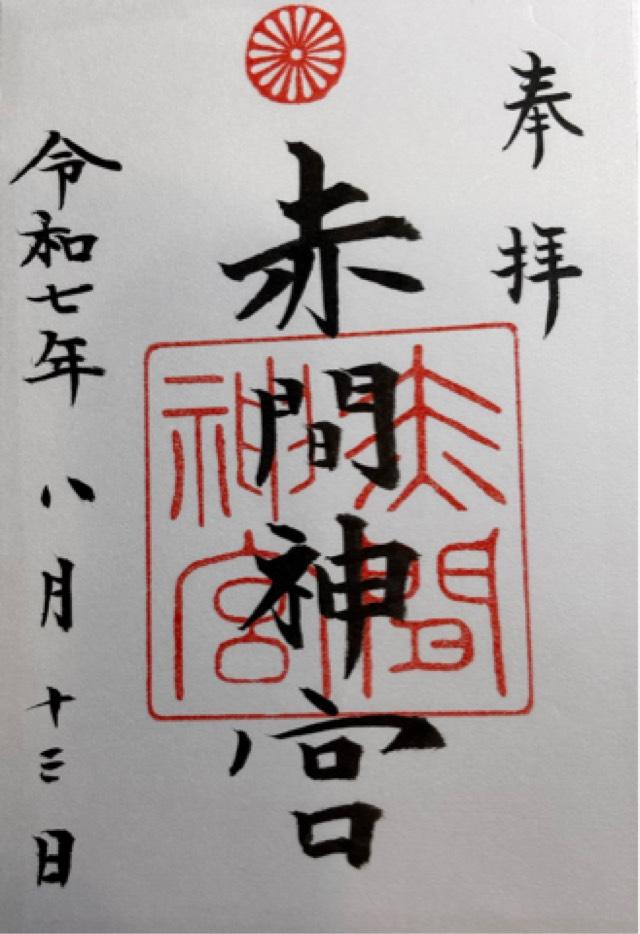 奉拝
赤間神宮
赤間神宮
令和七年八月十三日